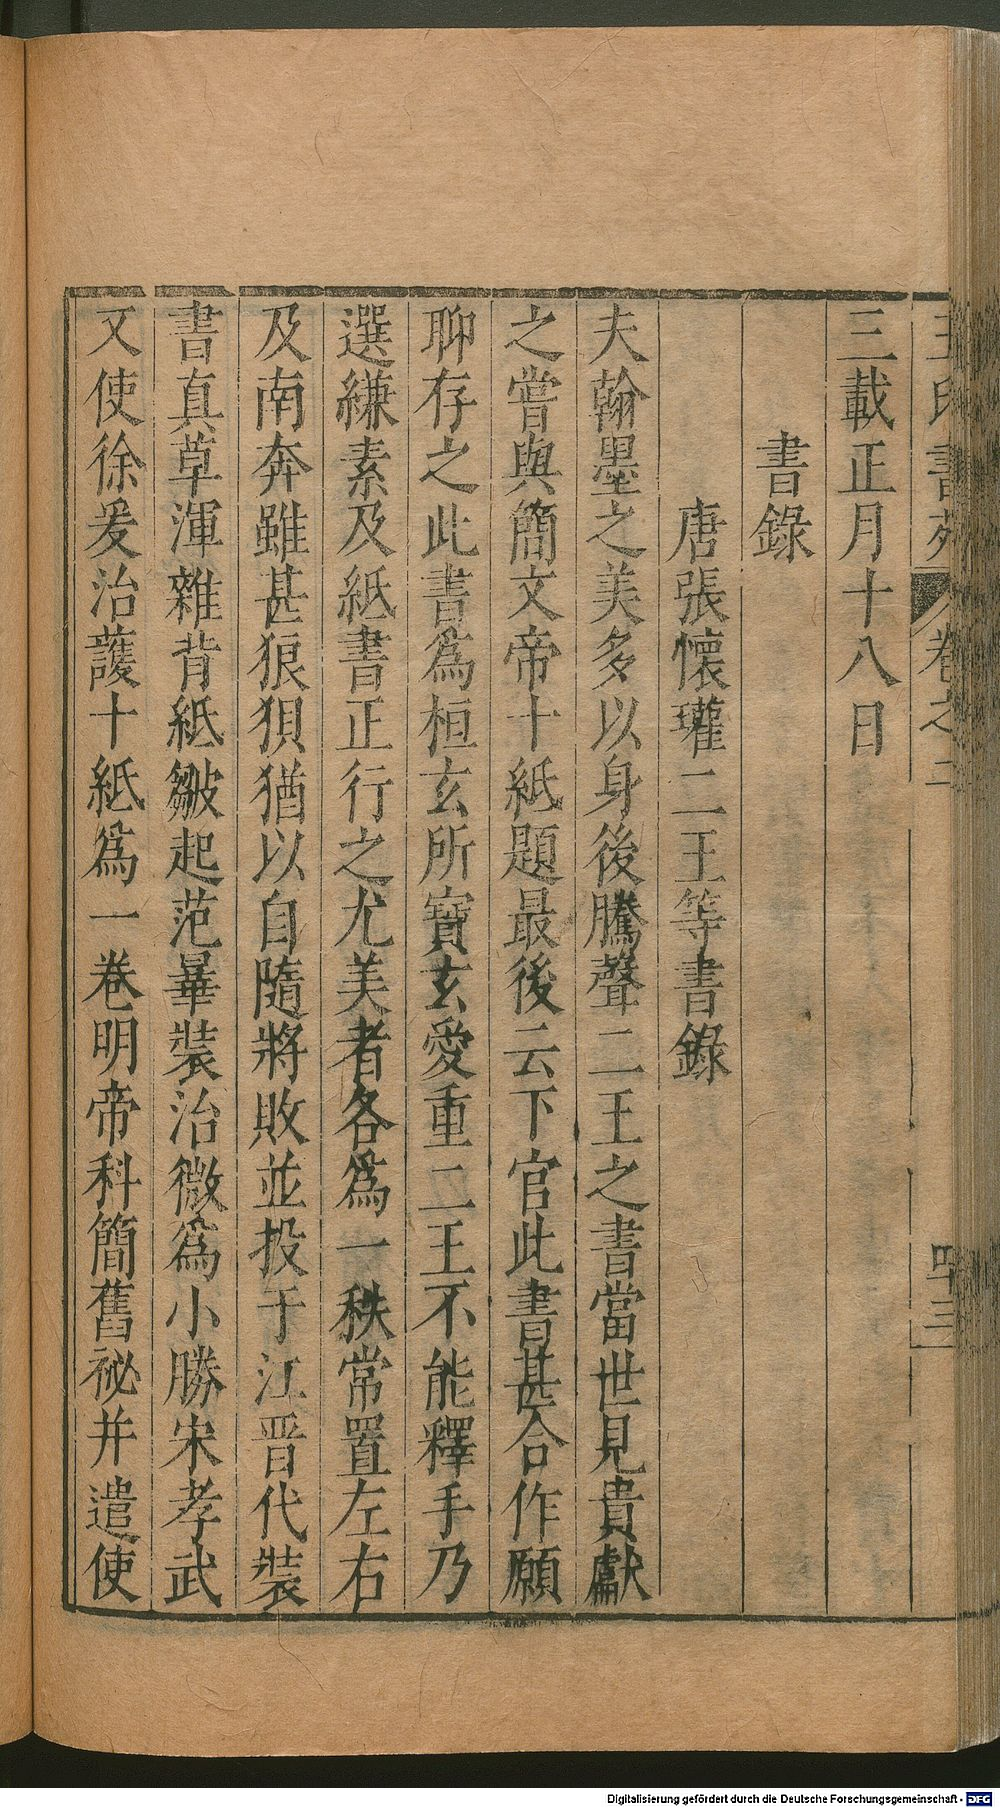 王氏書苑 卷之二 四十三
三載正月十八日
書錄
唐張懷瓘二王等書錄
夫翰墨之美多以身後騰聲二王之書當世見貴獻
之嘗與簡文帝十紙題最後云下官此書甚合作願
聊存之此書為桓玄所寶玄愛重二王不能釋手乃
選縑素及紙書正行之尤美者各為一秩常置左右
及南奔雖甚狼狽猶以自隨將敗並投于江晉代裝
書真草渾雜背紙皺起范曅裝治微為小勝宋孝武
又使徐爰治護十紙為一卷明帝科簡舊祕并遣使
Digitalisierung gefördert durch die Deutsche Forschungsgemeinschaft - DFG